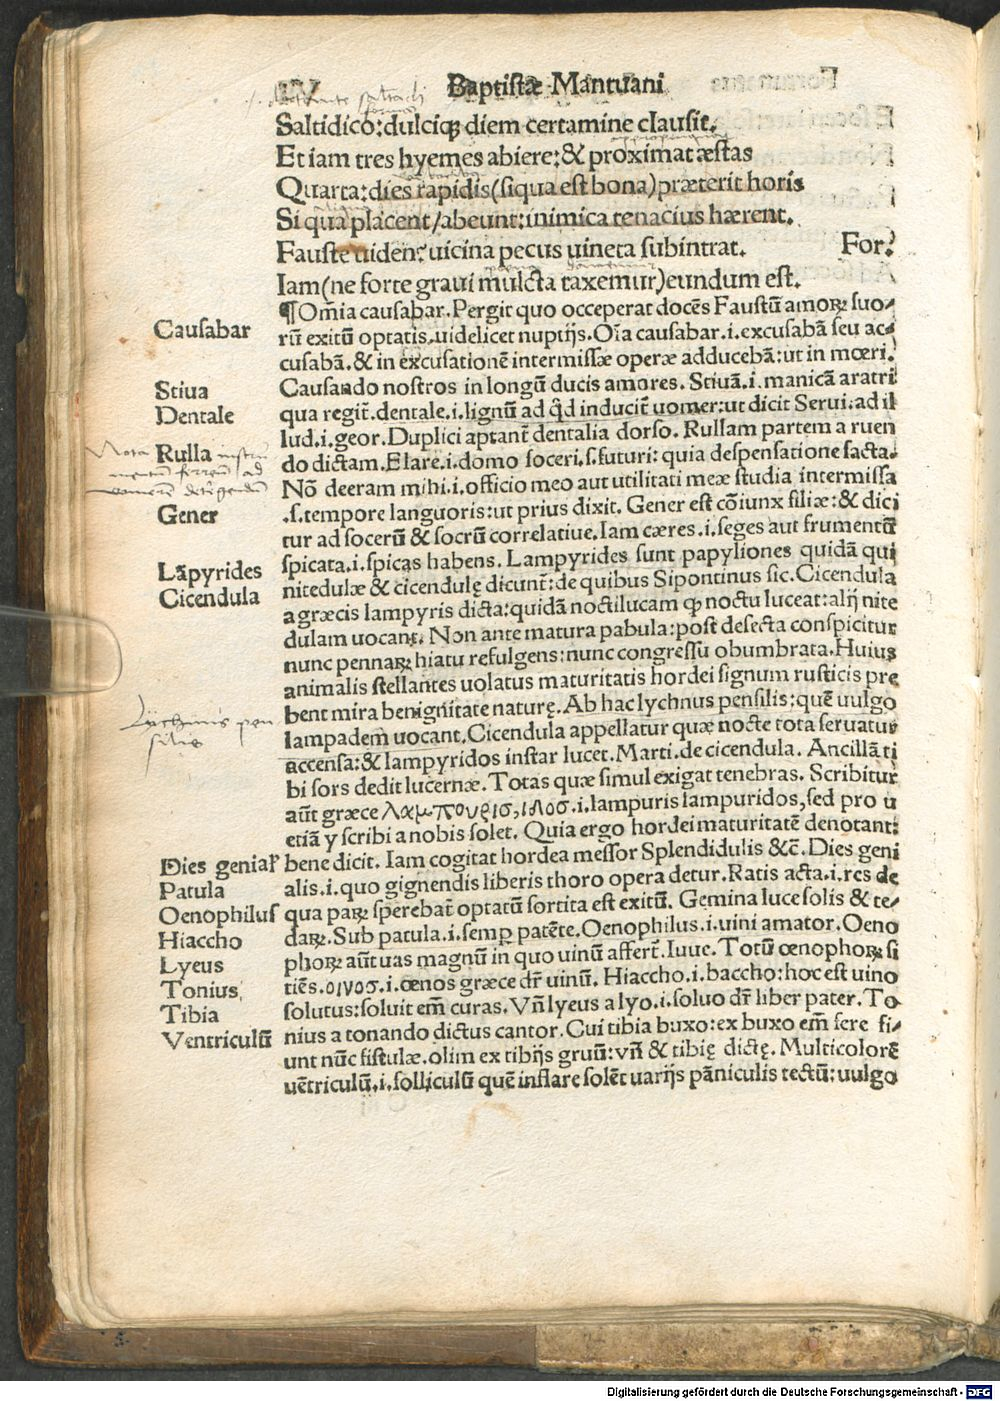 Baptistæ Mantuani
Saltidico:dulciqꝫ diem certamine clausit.
Et iam tres hyemes abiere:& proximat æstas
Quarta:dies rapidis(siqua est bona)præterit horis
Si qua placent/abeunt:inimica tenacius hærent.
Fauste uiden?uicina pecus uineta subintrat. For.
Iam(ne forte graui mulcta taxemur)eundum est.
¶Om̄ia causabar.Pergit quo occeperat docēs Faustū amoꝝ suo-
rū exitū optatis.uidelicet nuptijs.Oīa causabar.i.excusabā seu ac-
cusabā.& in excusationē intermissæ operæ adducebā:ut in mœri.
Causando nostros in longū ducis amores.Stiuā.i.manicā aratri
qua regit̄.dentale.i.lignū ad qd̄ inducit̄ uomer:ut dicit Serui.ad il
lud.i.geor.Duplici aptant̄ dentalia dorso.Rullam partem a ruen
do dictam.E lare.i.domo soceri.s.futuri:quia despensatione facta.
Nō deeram mihi.i.officio meo aut utilitati meæ studia intermissa
.s.tempore languoris:ut prius dixit.Gener est cōiunx filiæ:& dici
tur ad socerū & socrū correlatiue.Iam cæres.i.seges aut frumentū
spicata.i.spicas habens.Lampyrides sunt papyliones quidā qui
nitedulæ & cicendulę dicunt̄:de quibus Sipontinus sic.Cicendula
a græcis lampyris dicta:quidā noctilucam ꝙ noctu luceat:alij nite
dulam uocant.Non ante matura pabula:post desecta conspicitur
nunc pennaꝝ hiatu refulgens:nunc congressu obumbrata.Huius
animalis stellantes uolatus maturitatis hordei signum rusticis pre
bent mira benignitate naturę.Ab hac lychnus pensilis:quē uulgo
lampadem uocant,Cicendula appellatur quæ nocte tota seruatur
accensa:& lampyridos instar lucet.Marti.de cicendula.Ancillā ti
bi sors dedit lucernæ.Totas quæ simul exigat tenebras.Scribitur
aūt græce λαμπουρισ,ιλοσ.i.lampuris lampuridos,sed pro u
etiā y scribi a nobis solet.Quia ergo hordei maturitatē denotant:
bene dicit.Iam cogitat hordea messor Splendidulis &c̄.Dies geni
alis.i.quo gignendis liberis thoro opera detur.Ratis acta.i.res de
qua paꝝ sperebat̄ optatū sortita est exitū.Gemina luce solis & te-
daꝝ.Sub patula.i.semp patēte.Oenophilus.i.uini amator.Oeno
phoꝝ aūt uas magnū in quo uinū affert̄.Iuue.Totū œnophoꝝ si
tiēs.οινοσ.i.œnos græce dr̄ uinū.Hiaccho.i.baccho:hoc est uino
solutus:soluit em̄ curas.Vn̄ lyeus a lyo.i.soluo dr̄ liber pater.To
nius a tonando dictus cantor.Cui tibia buxo:ex buxo em̄ fere fi-
unt nūc fistulæ.olim ex tibijs gruū:vn̄ & tibię dictę.Multicolorē
uētriculū.i.solliculū quē inflare solēt uarijs pāniculis tectū:uulgo
Causabar
Stiua
Dentale
Nota Rulla instru
mentum ferreum ad
vomerē detergendū
Gener
Lāpyrides
Cicendula
Lychnus pen
silis
Dies geniaꝉ
Patula
Oenophilus
Hiaccho
Lyeus
Tonius
Tibia
Ventriculū
Digitalisierung gefördert durch die Deutsche Forschungsgemeinschaft - DFG